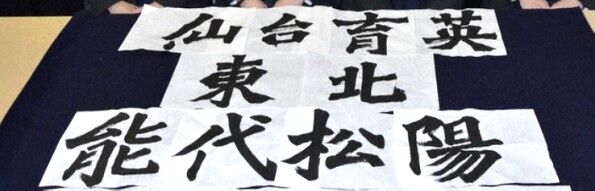 仙台育英
東北
能代松陽